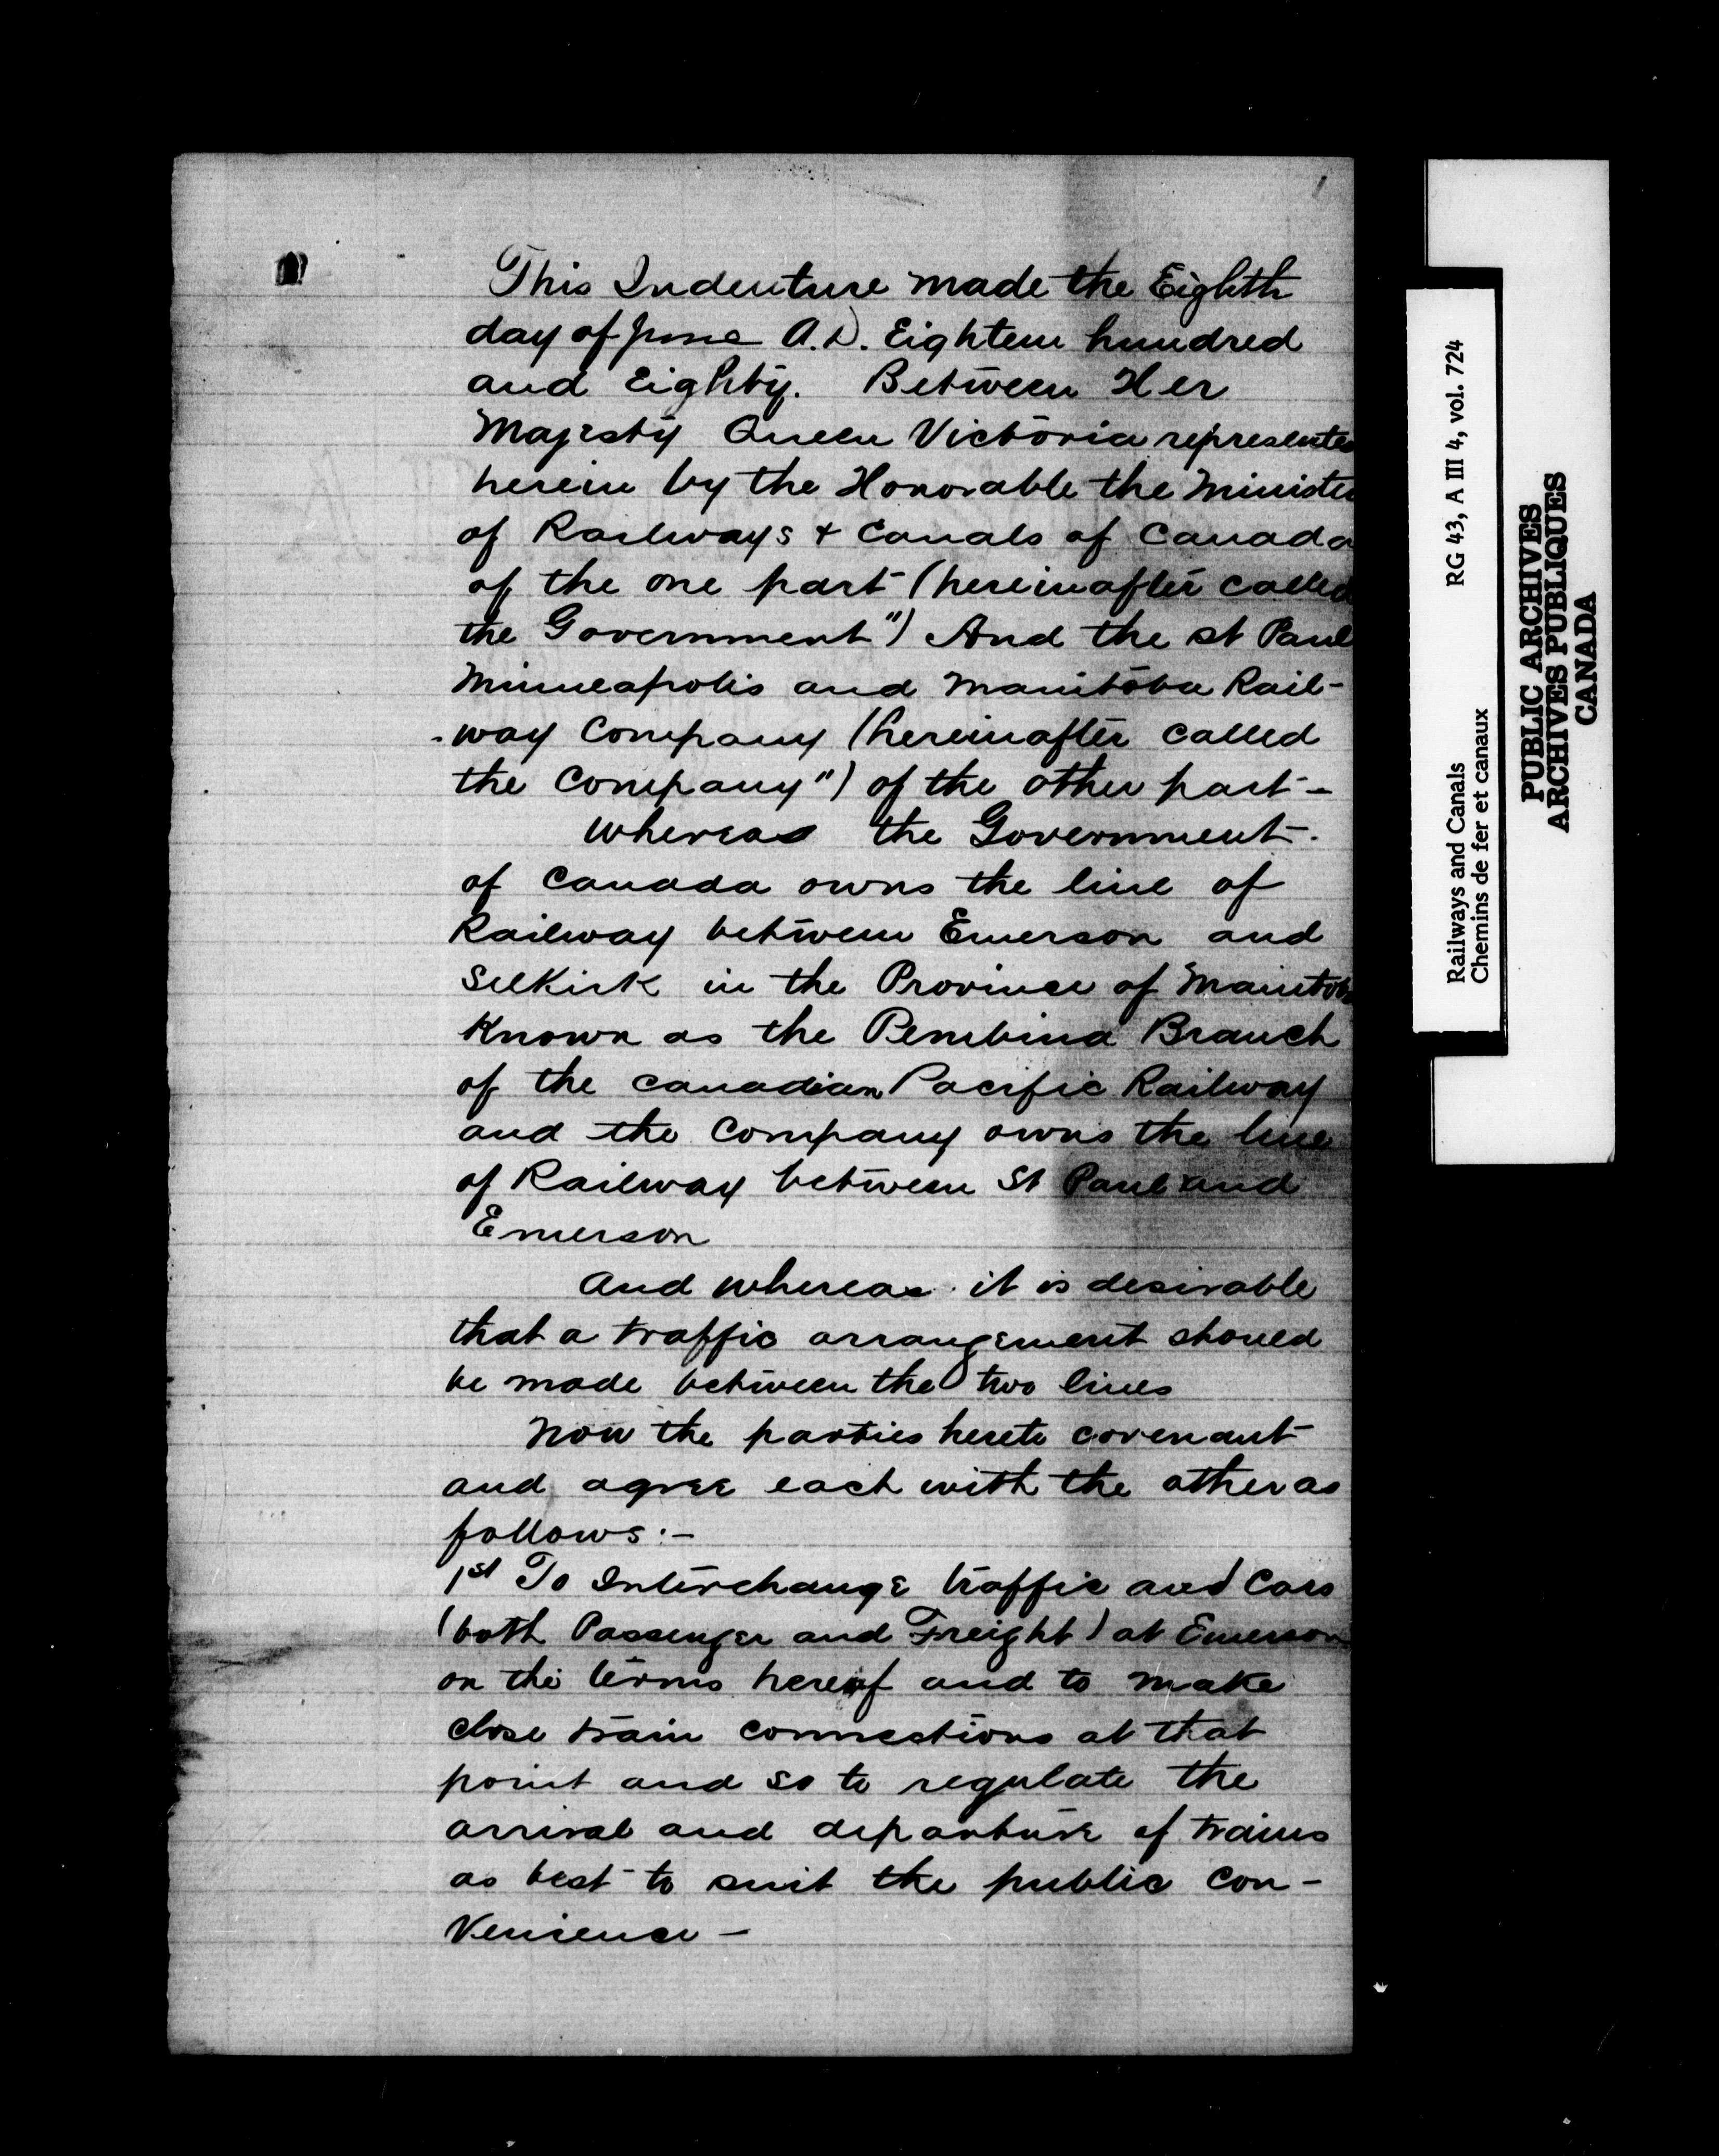 1
This Indenture made the Eighth
day of June A.D. Eighteen hundred
and Eighty. Between Her
Majesty Queen Victoria represente
herein by the Honorable the Ministe
of Railways & Canals of Canada
of the one part (hereinafter called
the Government") And the St Paul
Minneapolis and Manitoba Rail-
-way Company (hereinafter called
the Company") of the other part -
Whereas the Government
of Canada owns the line of
Railway between Emerson and
Selkirk in the Province of Manitoba
Known as the Pembina Branch
of the Canadian Pacific Railway
and the Company owns the line
of Railway between St Paul and
Emerson
And whereas it is desirable
that a traffic arrangement should
be made between the two lines
Now the parties hereto covenant
and agree each with the other as
follows:-
1st To Interchange traffic and Cars
(both Passenger and Freight) at Emerson
on the terms hereof and to make
close train connections at that
point and so to regulate the
arrival and departure of trains
as best to suit the public con-
venience -
Railways and Canals RG 43, A III 4, vol. 724
Chemins de fer et canaux
PUBLIC ARCHIVES
ARCHIVES PUBLIQUES
CANADA